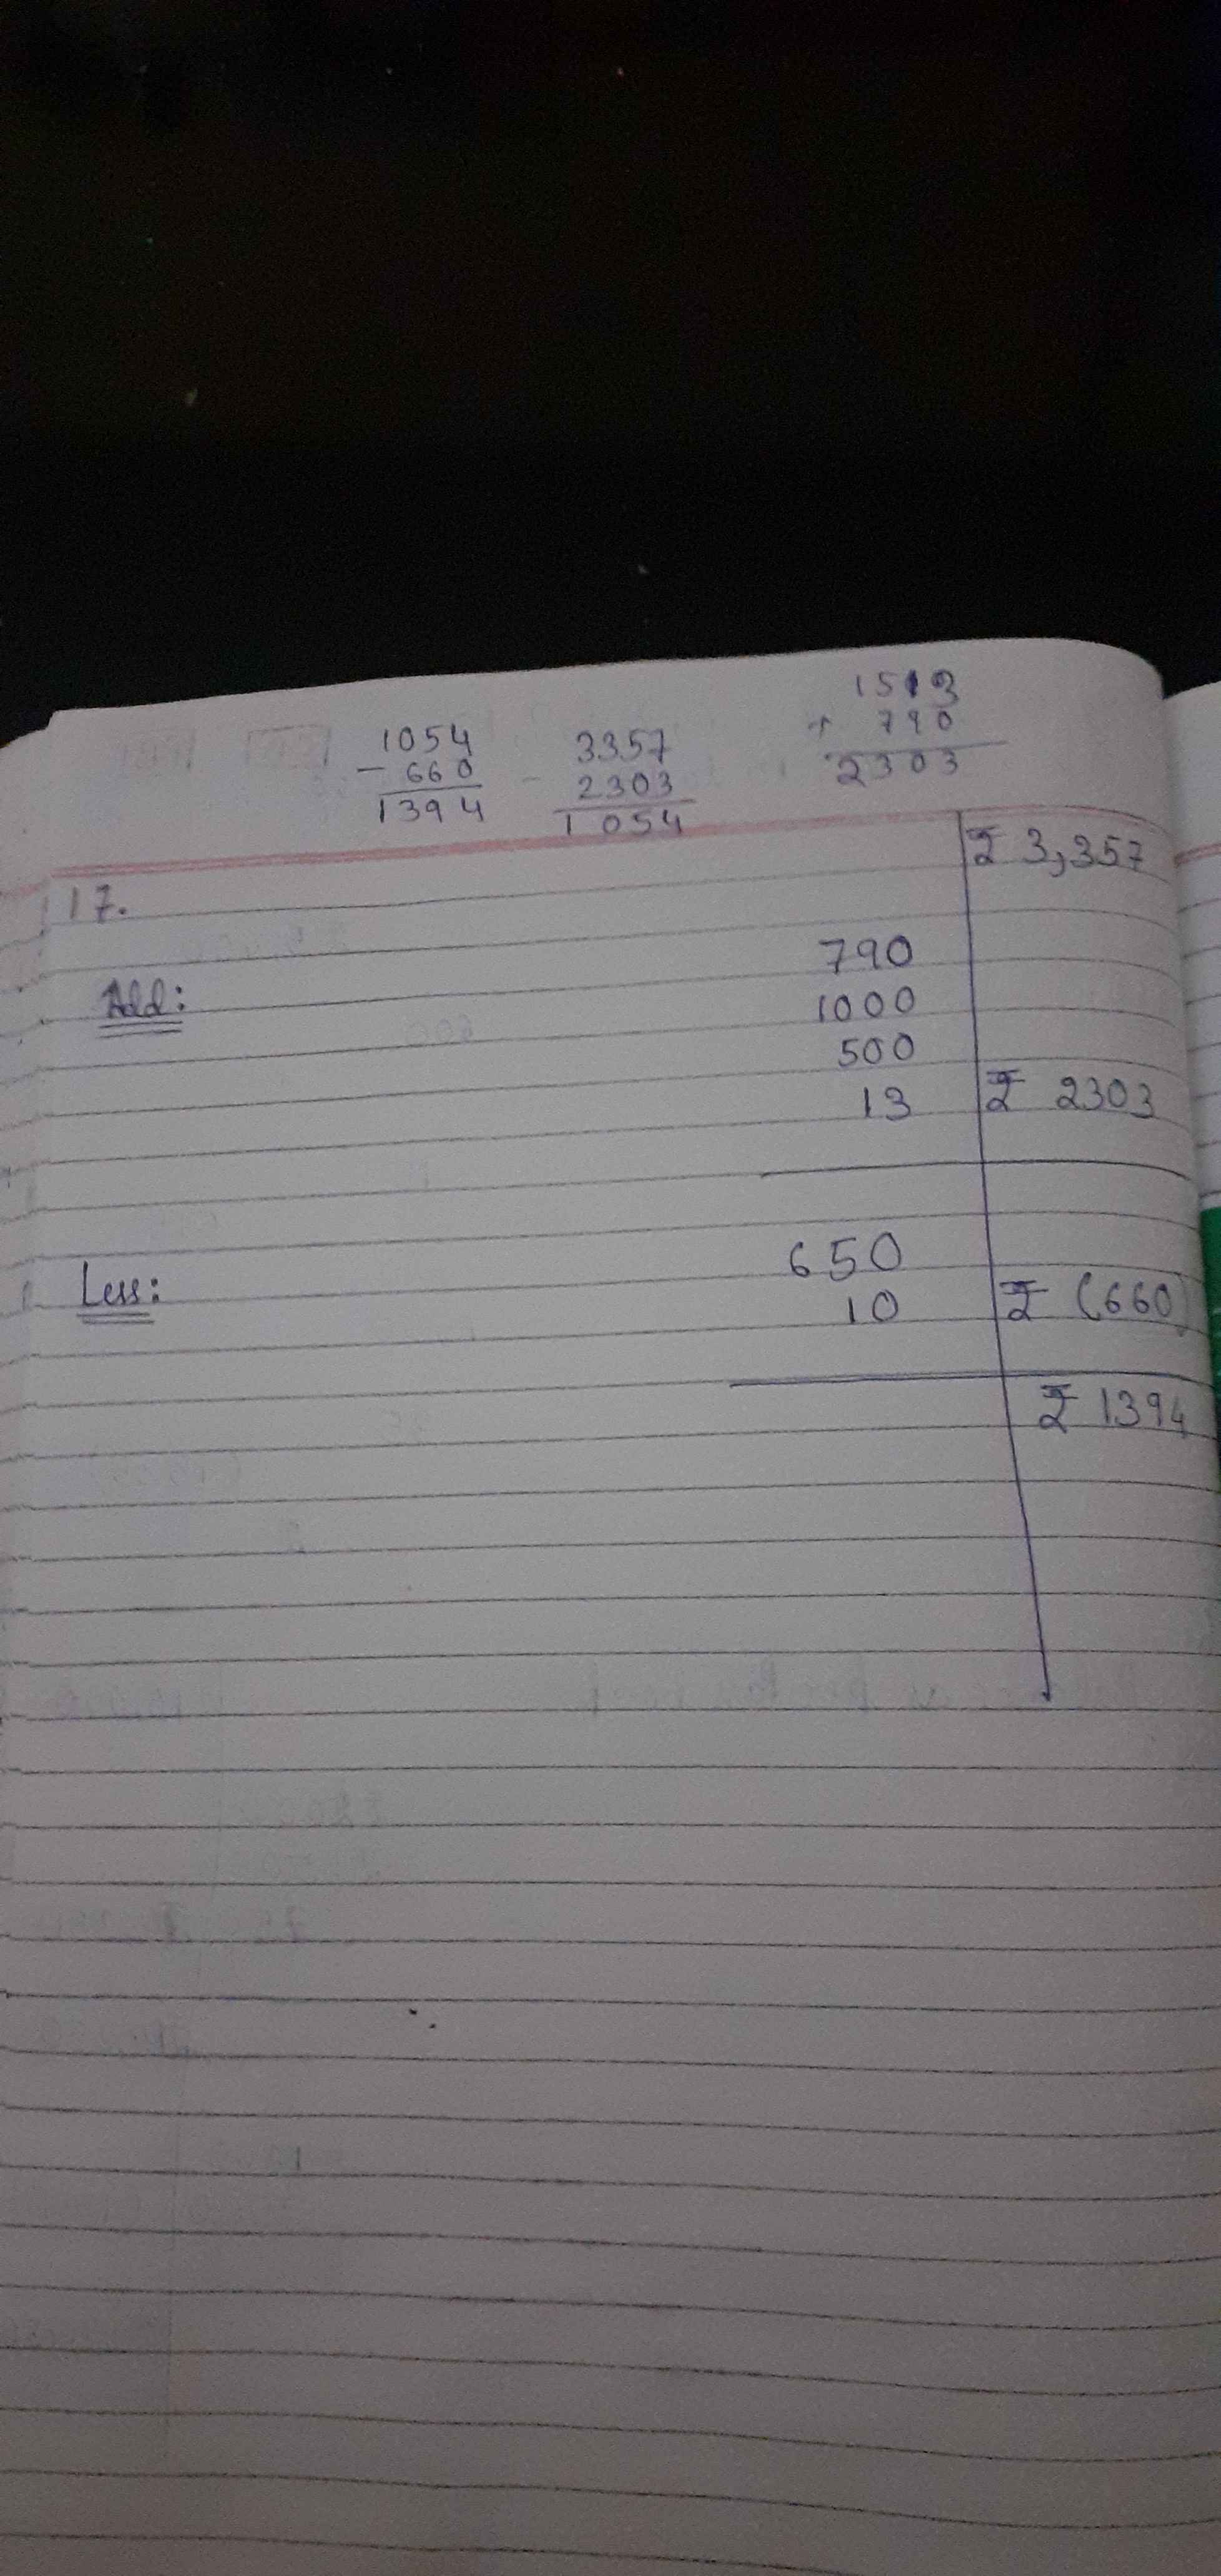 1054
- 660
1394
3357
- 2303
1054
1513
+ 790
2303
₹ 3,357
17.
790
Add:
1000
500
13 ₹ 2303
650
Less:
10 ₹ (660)
₹ 1394